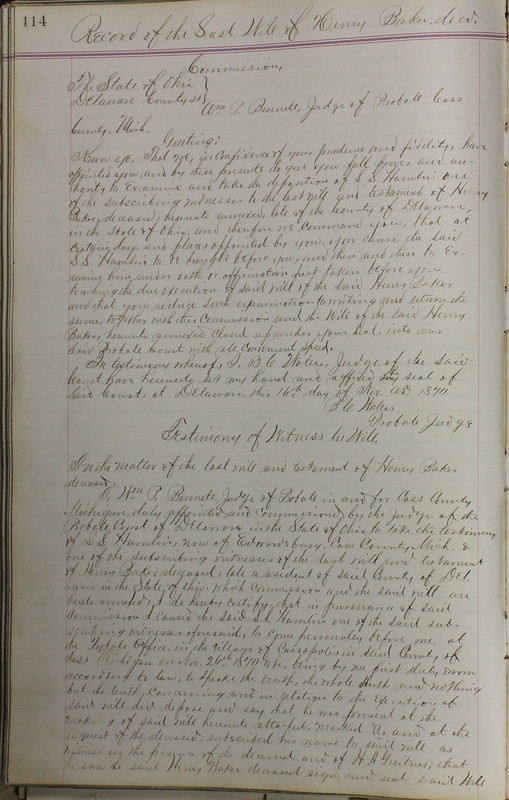 114
Record of the Last Will of Henry Baker, decd.
Commission,
The State of Ohio
Delaware County ss
Wm P. Bennett, Judge of Probate Cass
County, Mich.
Greeting:
Know ye, That we, in confidence of your prudence and fidelity, have
appointed you, and by these presents do give you full power and au-
thority to examine and take the deposition of S. S. Hamlin one
of the subscribing witnesses to the last will and testament of Henry
Baker, deceased, hereunto annexed, late of the County of Delaware,
in the State of Ohio, and therefore we command you, that at
certain days and places appointed by you, you cause the said
S.S. Hamlin to be brought before you, and then and there to Ex-
amine him under oath or affirmation first taken before you
touching the due execution of said will of the said Henry Baker
and that you reduce such examination to writing and return the
same, together with this Commission and the Will of the said Henry
Baker, hereunto annexed closed up under your seal into our
said Probate Court with all Convenient speed.
In testimony whereof, I, B. C. Waters, Judge of the said
Court, have hereunto set my hand and affixed the seal of
said Court, at Delaware, this 16th day of Nov. AD 1870.
B C Waters
Probate Judge
Testimony of Witness to Will.
In the matter of the last will and testament of Henry Baker
deceased,
I, Wm P. Bennett, Judge of Probate in and for Cass County
Michigan, duly appointed and Commissioned by the Judge of the
Probate Court of Delaware in the State of Ohio to take the testimony
of S S Hamlin, now of Edwardsburg, Cass County, Mich. &
one of the subscribing witnesses of the last will and testament
of Henry Baker deceased, late a resident of said County of Del-
aware in the State of Ohio, which Commission and the said will are
hereto annexed, I do hereby certify, that in pursuance of said
Commission I caused the said S S Hamlin one of the said sub-
scribing witnesses aforesaid, to come personally before me at
the Probate Office, in the village of Cassopolis in said County of
Cass Michigan on Nov. 26th 1870 who, being by me first duly sworn
according to law, to speak the truth, the whole truth and nothing
but the truth, concerning and in relation to the execution of
said will did depose and say that he was present at the
making of said will hereunto attached, marked A, and at the
request of the deceased, subscribed his name to said will as
witness in the presence of the deceased and of that
he saw the said Henry Baker deceased sign and seal said Will